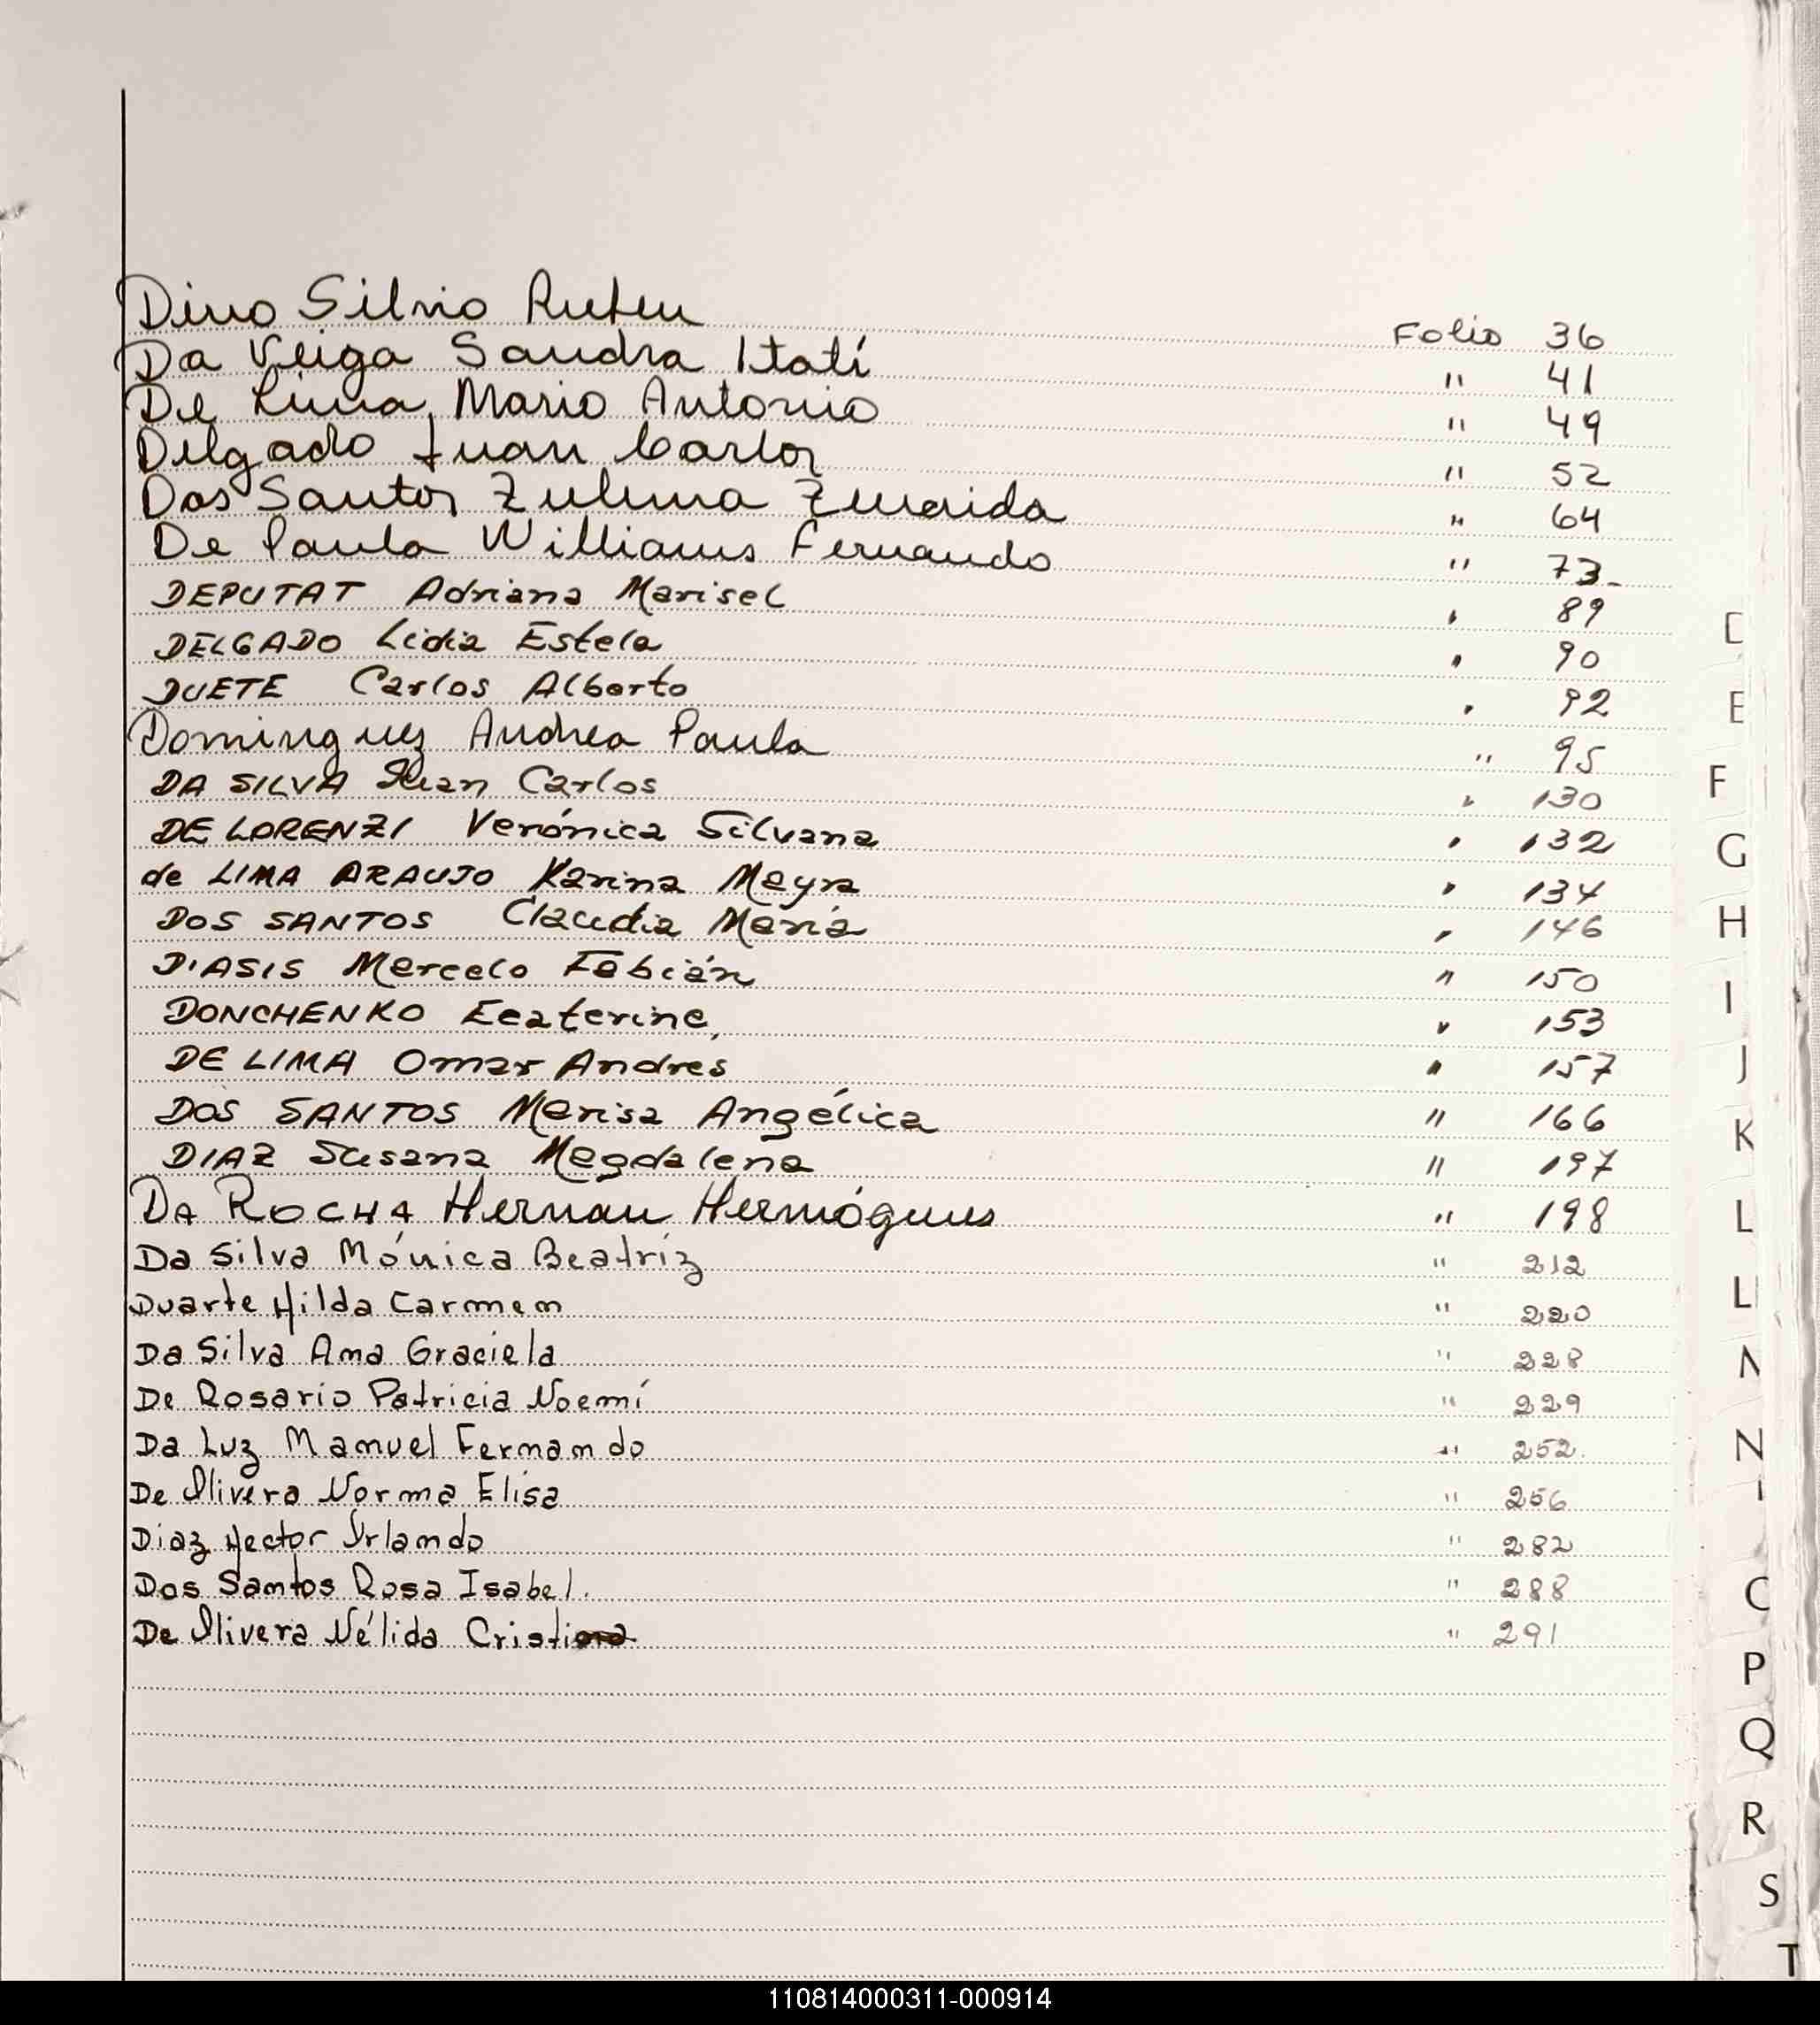 Dino Silvio Ruben Folio 36
Da Veiga Sandra Itatí " 41
De Lima, Mario Antonio " 49
Delgado Juan Carlos " 52
Dos Santos Zulema Zenaida " 64
De Paula Williams Fernando " 73-
DEPUTAT Adriana Marisel " 89
DELGADO Lidia Estela " 90
DUETE Carlos Alberto " 92
Dominguez Andrea Paula " 95
DA SILVA Juan Carlos " 130
DE LORENZI Verónica Silvana " 132
de LIMA ARAUJO Karina Mayra " 134
DOS SANTOS Claudia María " 146
D'ASIS Marcelo Fabián " 150
DONCHENKO Ecaterine, " 153
DE LIMA Omar Andres " 157
DOS SANTOS Marisa Angélica " 166
DIAZ Susana Magdalena " 197
DA ROCHA Hernan Hermógenes " 198
Da Silva Mónica Beatríz " 212
Duarte Hilda Carmen " 220
Da Silva Ana Graciela " 228
De Rosario Patricia Noemí " 229
Da Luz Manuel Fernando " 252.
De Olivera Norma Elisa " 256
Diaz Hector Orlando " 282
Dos Santos Rosa Isabel. " 288
De Olivera Nélida Cristina " 291
E
F
G
H
I
J
K
L
L
N
P
Q
R
S
T
110814000311-000914